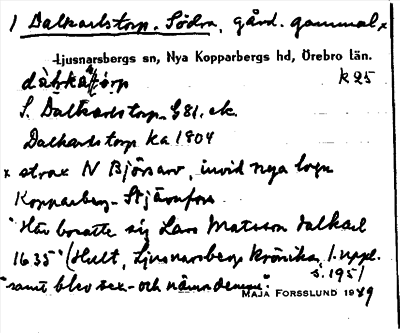 1 Dalkarlstorp. Södra, gård. gammal x
Ljusnarsbergs sn, Nya Kopparbergs hd, Örebro län.
k 25
S. Dalkarlstorp. G 81. ek.
Dalkarlstorp ka 1804
x strax N Björsarv, invid nya
Kopparberg - Stjärnfors
"Här bosatte sig Lars Matsson Dalkarl
1635" (Hult, Ljusnarsbergs krönika, 1. uppl.
s. 195)
"samt blev sex- och nämndeman".
MAJA FORSSLUND 1949